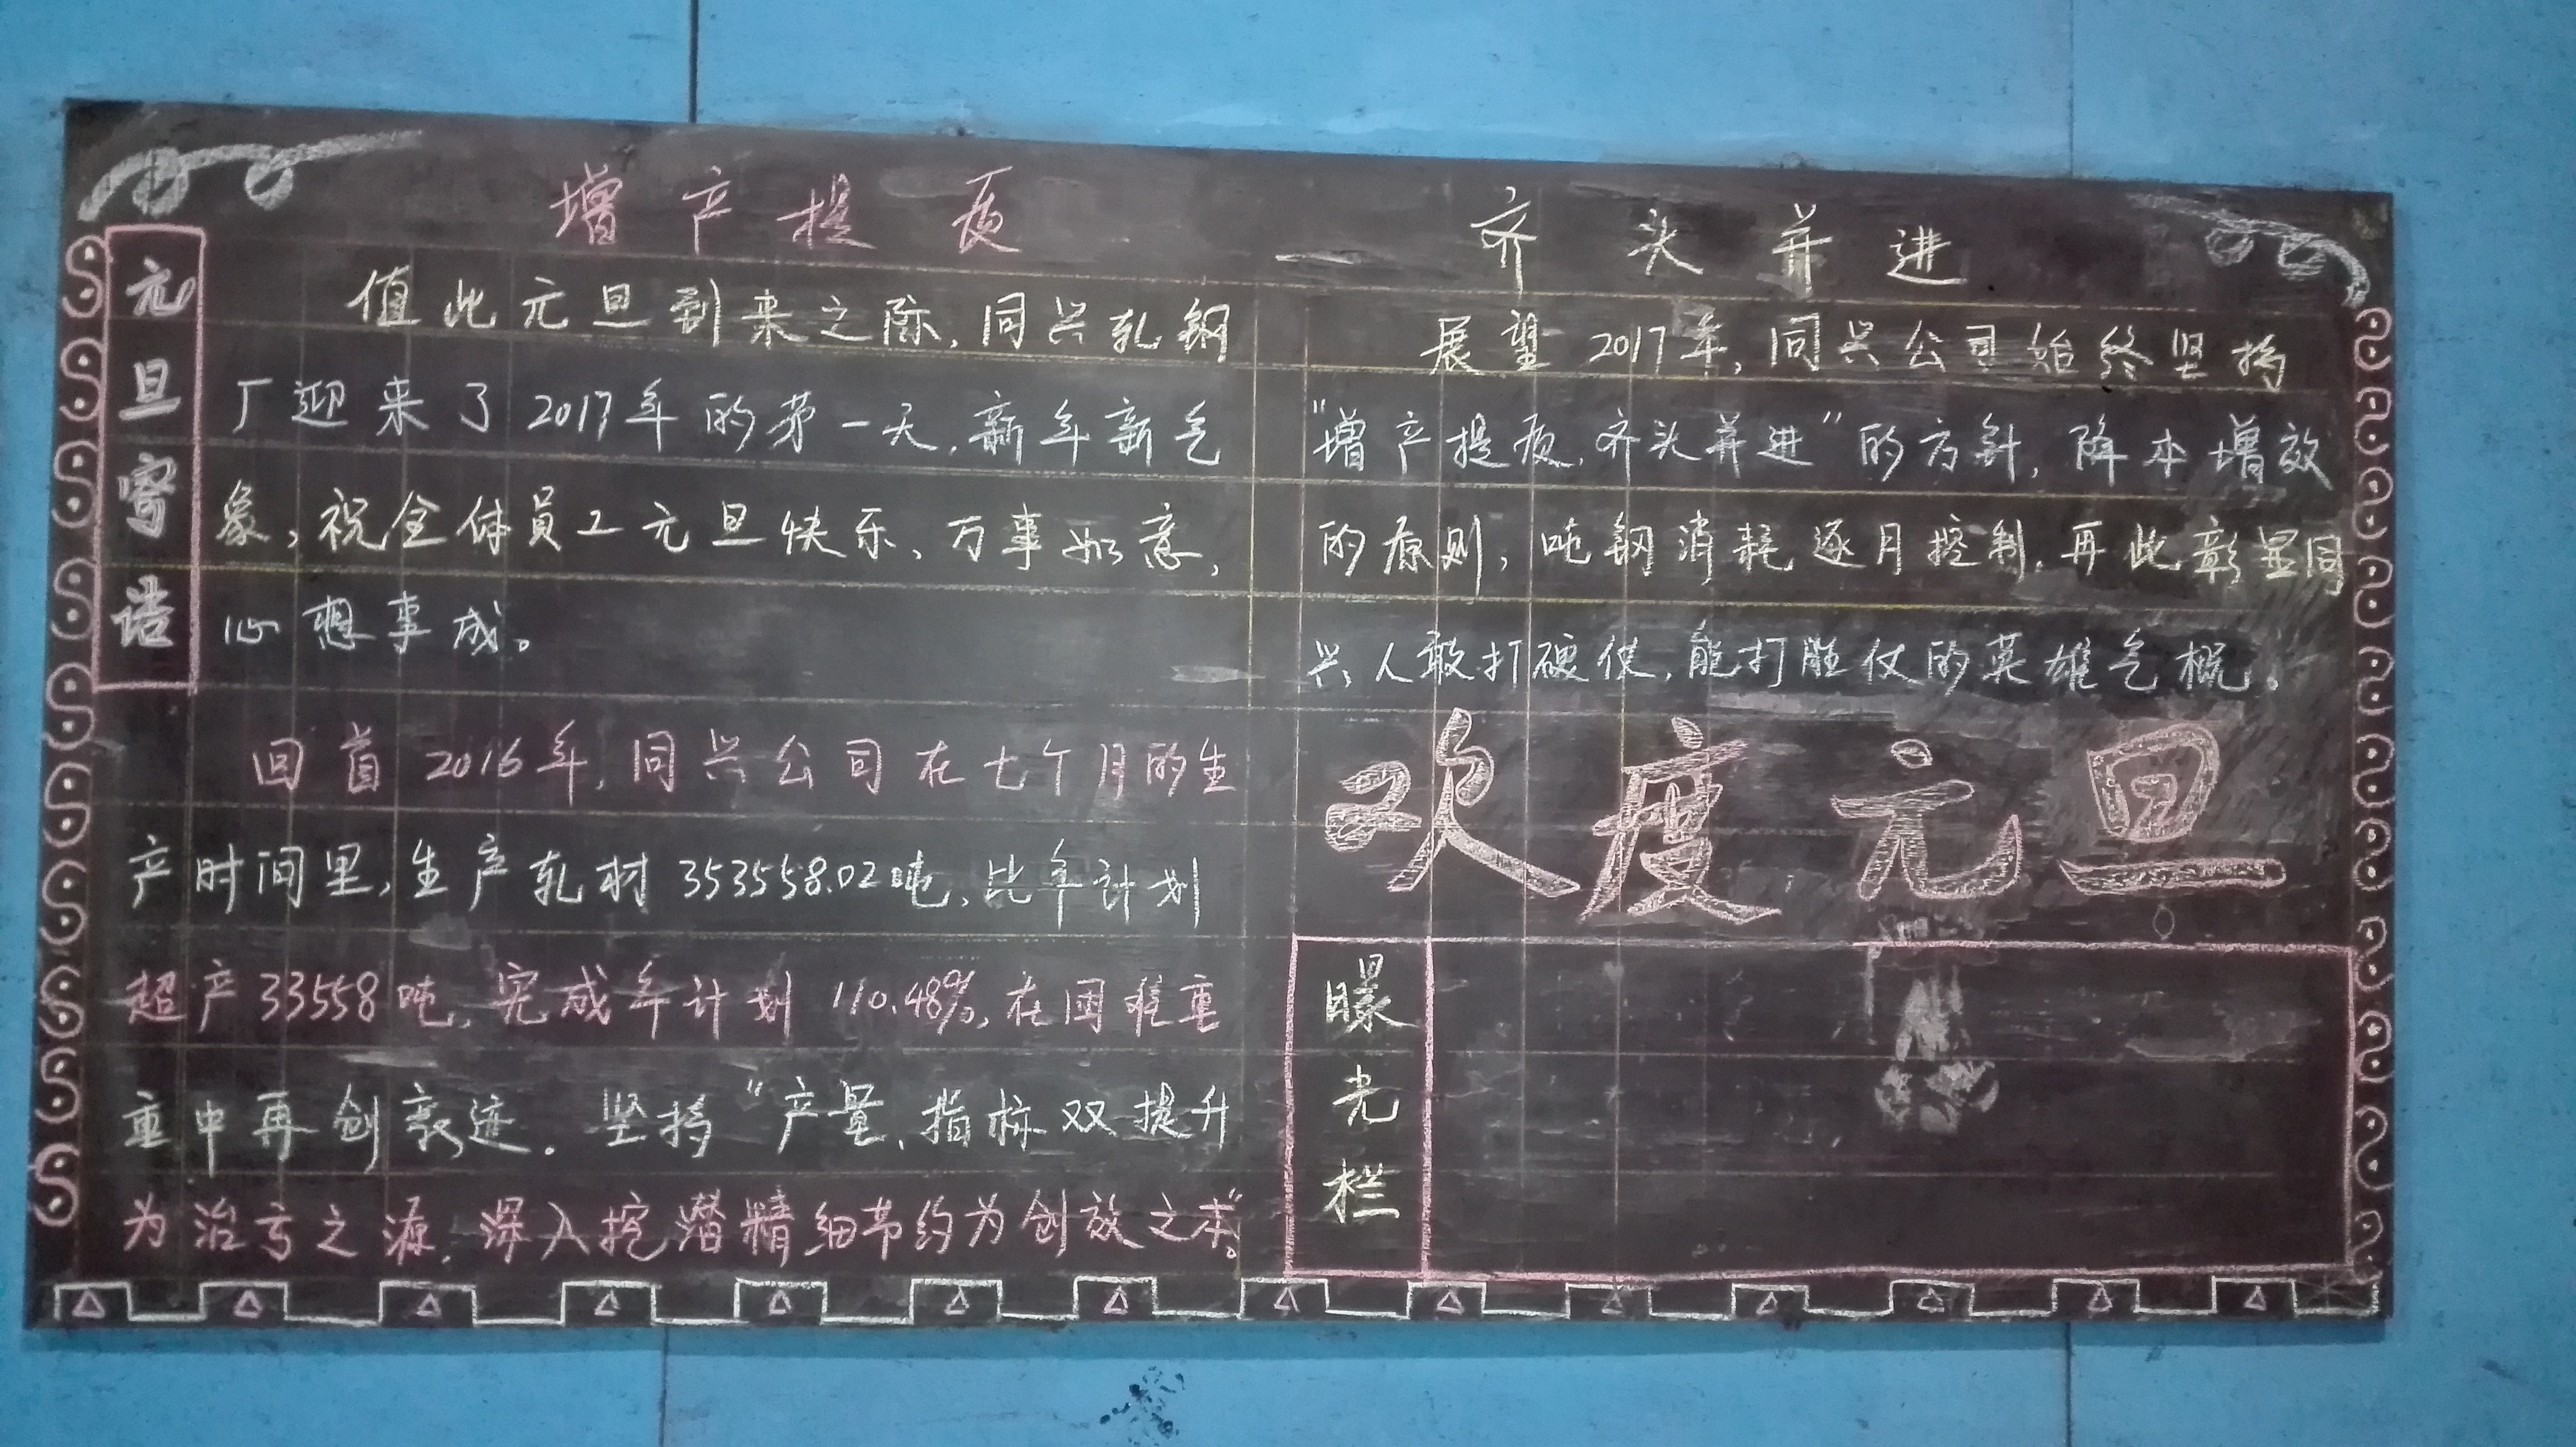 增产提质 齐头并进
元旦寄语
值此元旦到来之际,同兴轧钢
厂迎来了2017年的第一天,新年新气
象,祝全体员工元旦快乐,万事如意,
心想事成。
回首2016年,同兴公司在七个月的生
产时间里,生产轧材353558.02吨,比年计划
超产33558吨,完成年计划110.48%,在困难重
重中再创辉迹。坚持“产量,指标双提升
为治亏之源,深入挖潜精细节约为创效之本”。
展望2017年,同兴公司始终坚持
“增产提质,齐头并进”的方针,降本增效
的原则,吨钢消耗逐月控制,再此彰显同
兴人敢打硬仗,能打胜仗的英雄气概。
欢度元旦
曝光栏